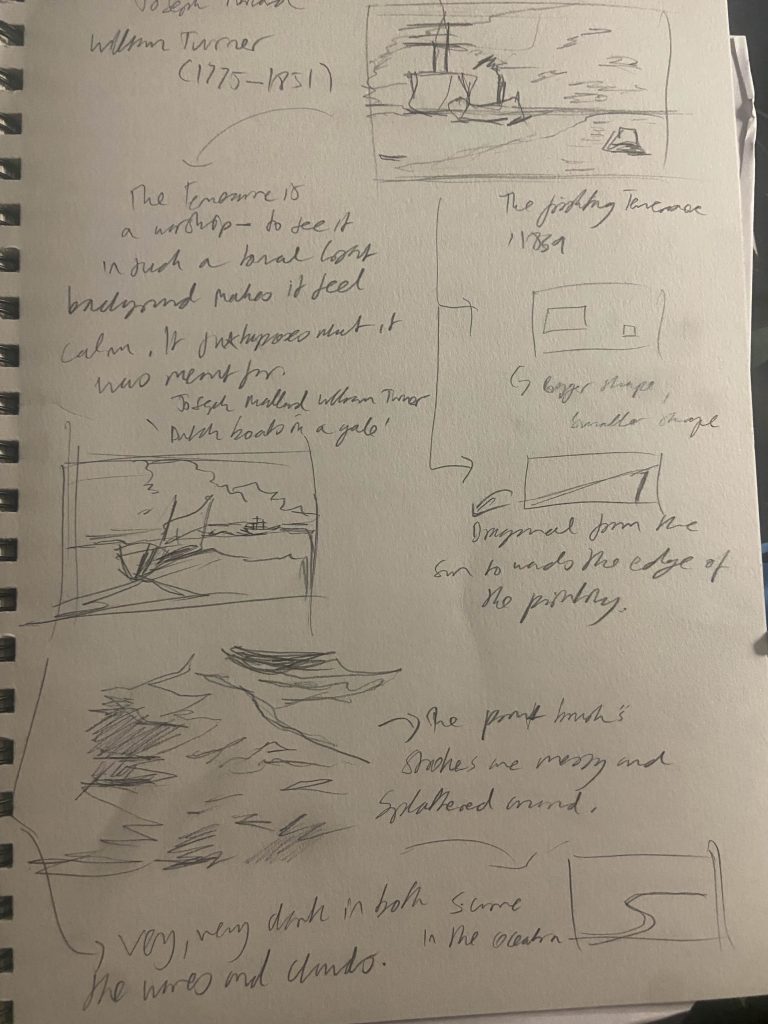 Joseph
William Turner
(1775-1851)
The Temeraire is
a warship - to see it
in such a tonal light
background makes it feel
calm. It juxtaposes what it
was meant for.
The fighting Temeraire
1839
Bigger shape,
smaller shape
Diagonal from the
sun towards the edge of
the painting.
Joseph Mallord William Turner
'Dutch boats in a gale'
The paint brush's
strokes are messy and
splattered around.
Very, very dark in both
the waves and clouds.
in the